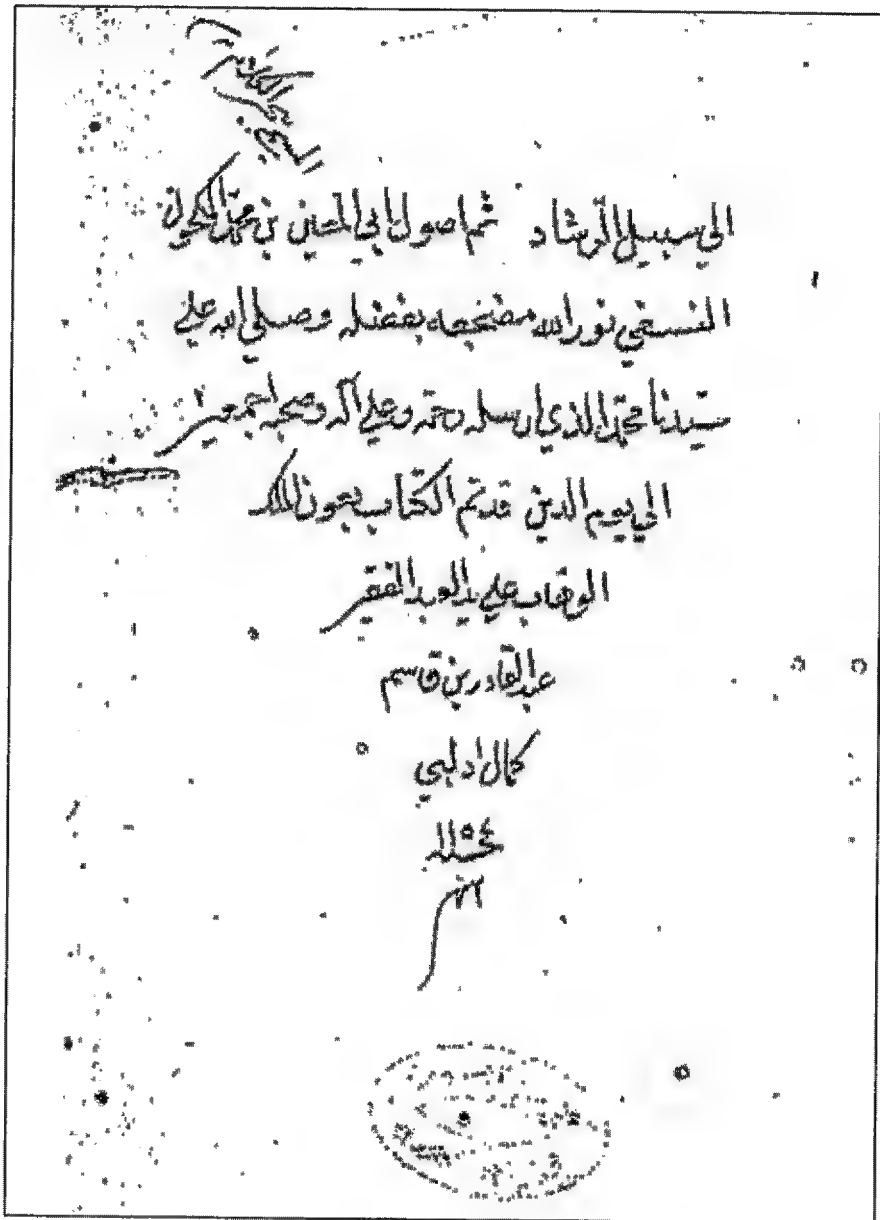 الي سبيل الرشاد تم اصول ابي المعين بن محمد المكحول
النسفي نور الله مضجعه بفضله وصلي الله علي
سيدنا محمد الذي ارسله رحمة وعلي آله وصحبه اجمعين
الي يوم الدين قد تم الكتاب بعون الملك
الوهاب علي يد العبد الفقير
عبد القادر بن قاسم
كمال ادلبي